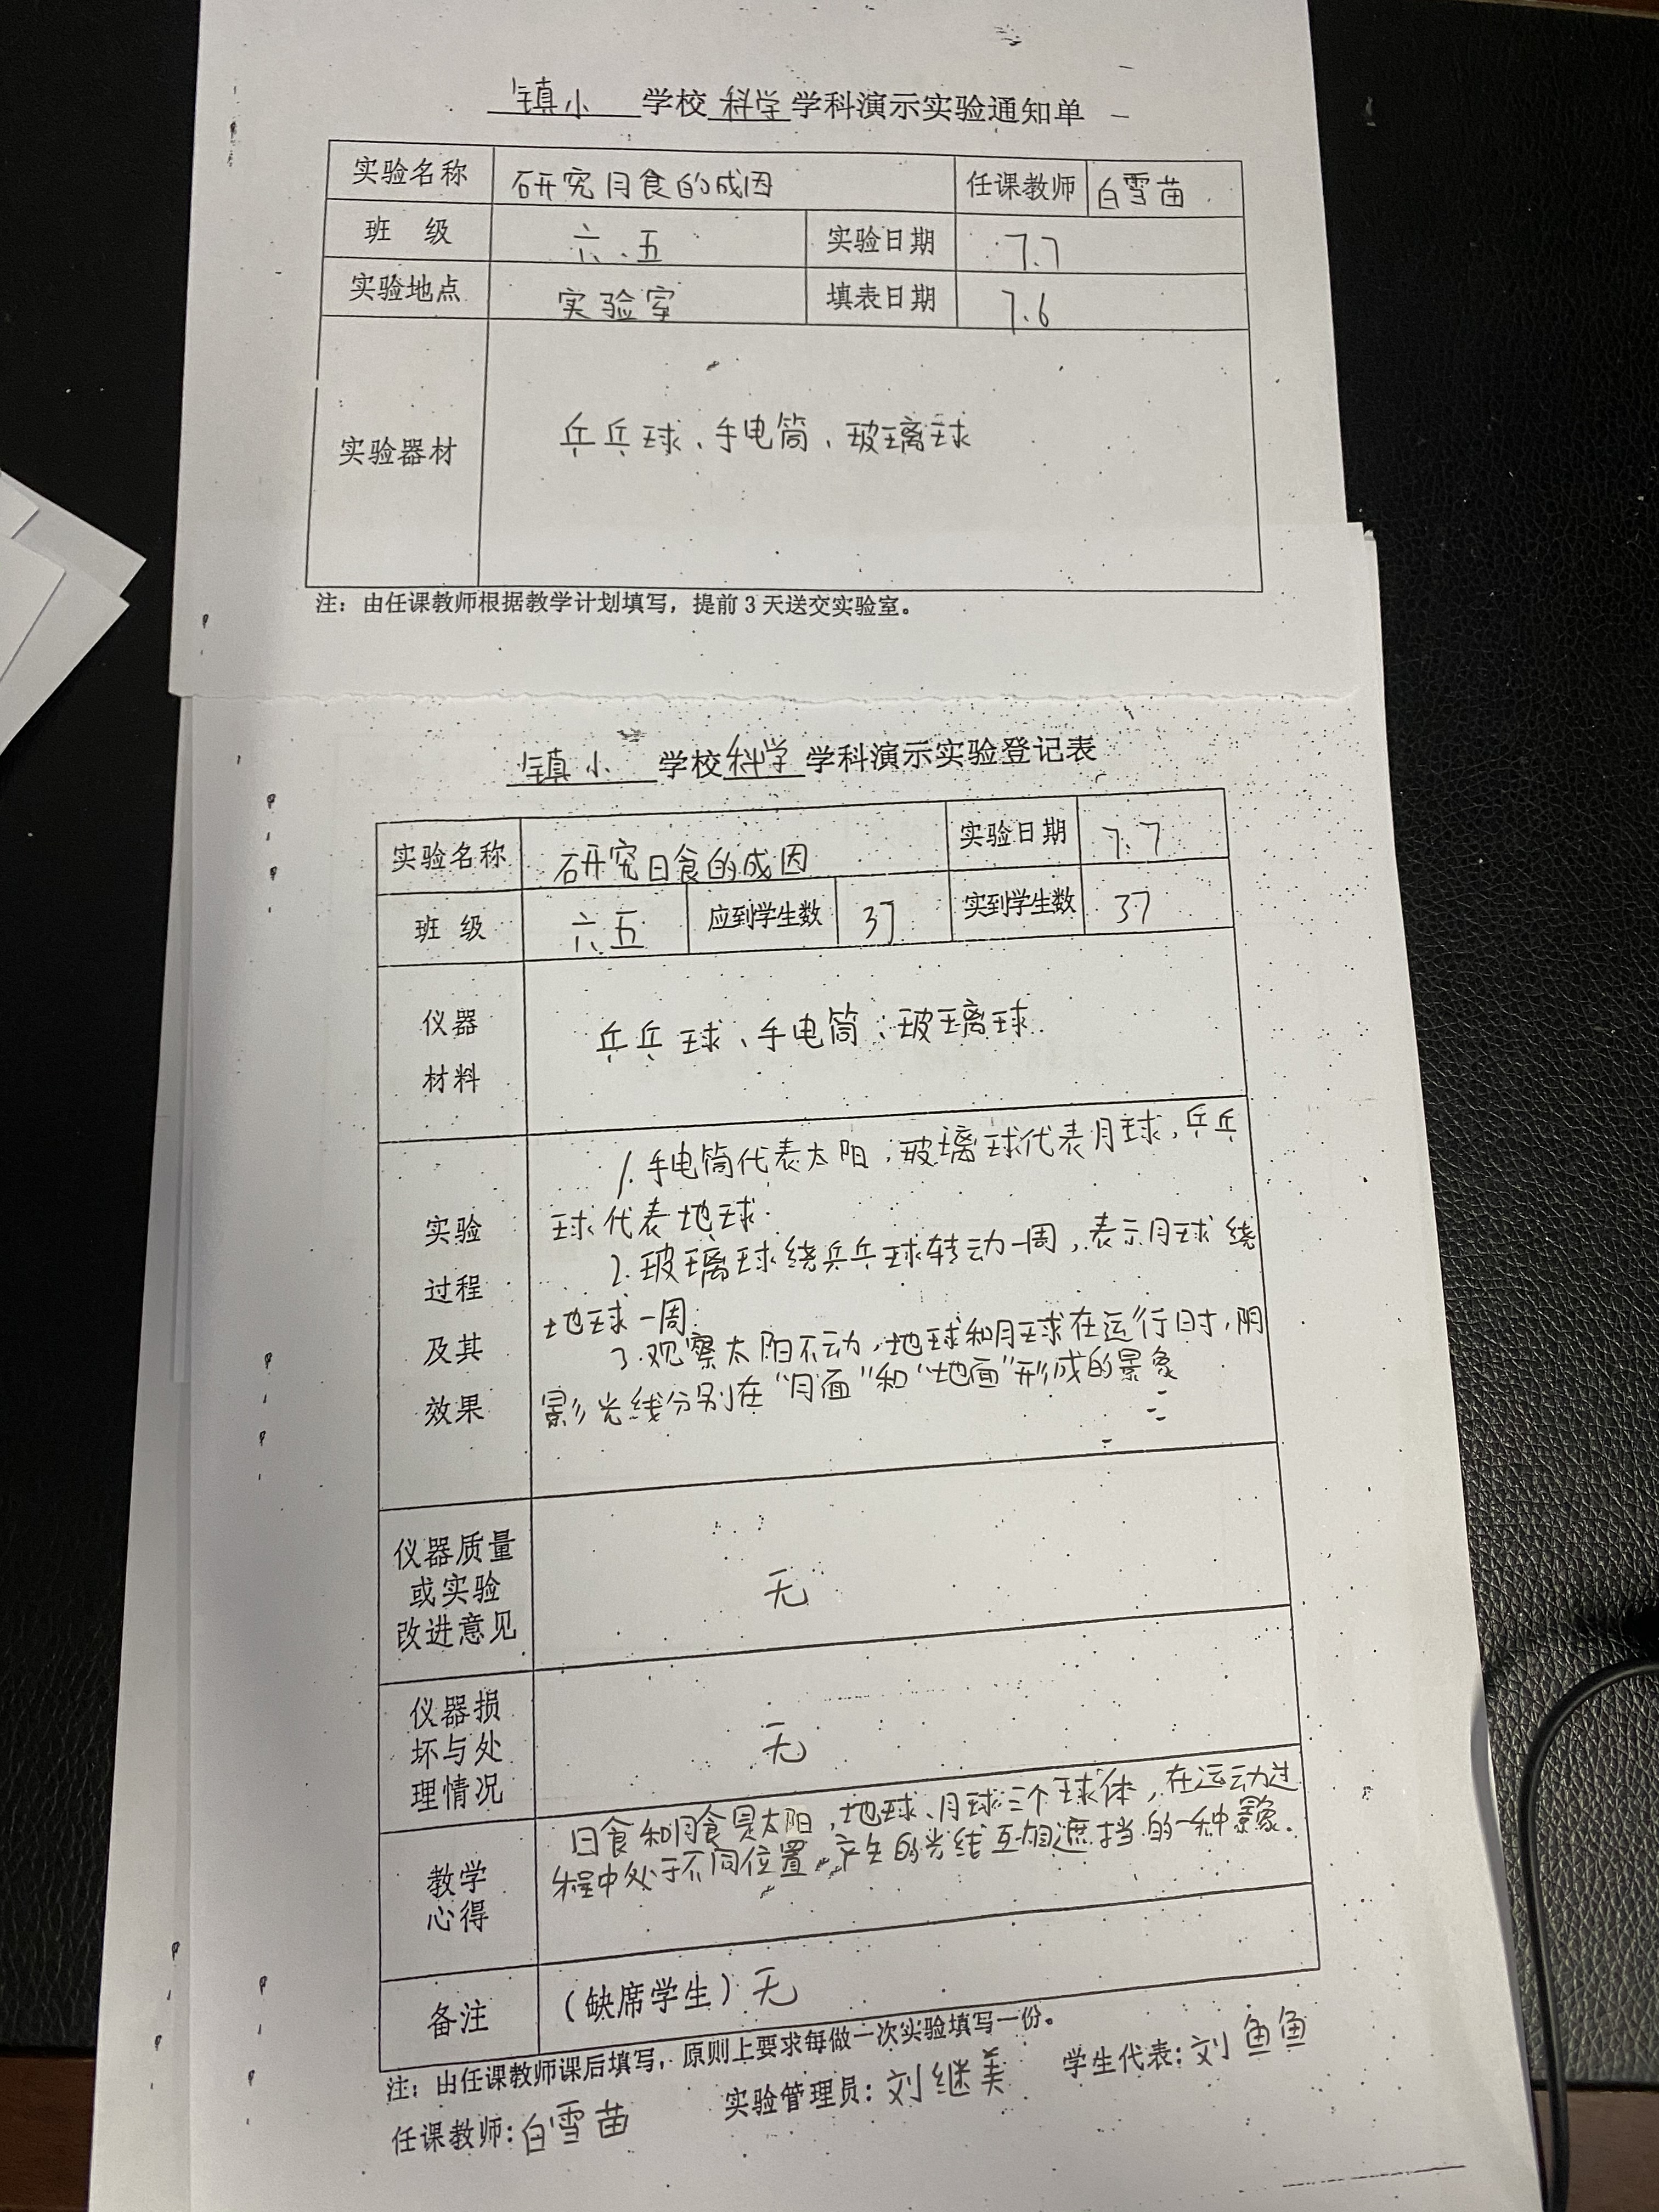 镇小 学校 科学 学科演示实验通知单
实验名称 研究月食的成因 任课教师 白雪苗
班 级 六.五 实验日期 7.7
实验地点 实验室 填表日期 7.6
实验器材 乒乓球、手电筒、玻璃球
注：由任课教师根据教学计划填写，提前3天送交实验室。
镇小 学校 科学 学科演示实验登记表
实验名称 研究日食的成因 实验日期 7.7
班 级 六、五 应到学生数 37 实到学生数 37
仪器
材料
乒乓球、手电筒、玻璃球.
实验
过程
及其
效果
1.手电筒代表太阳，玻璃球代表月球，乒乓
球代表地球.
2.玻璃球绕乒乓球转动一周，表示月球绕
地球一周.
3.观察太阳不动，地球和月球在运行时，阴
影光线分别在“月面”和“地面”形成的景象
仪器质量
或实验
改进意见
无
仪器损
坏与处
理情况
无
教学
心得
日食和月食是太阳，地球、月球三个球体，在运动过
程中处于不同位置，产生的光线互相遮挡的一种景象.
备注 （缺席学生）无
注：由任课教师课后填写，原则上要求每做一次实验填写一份。
任课教师：白雪苗 实验管理员：刘继美 学生代表：刘鱼鱼